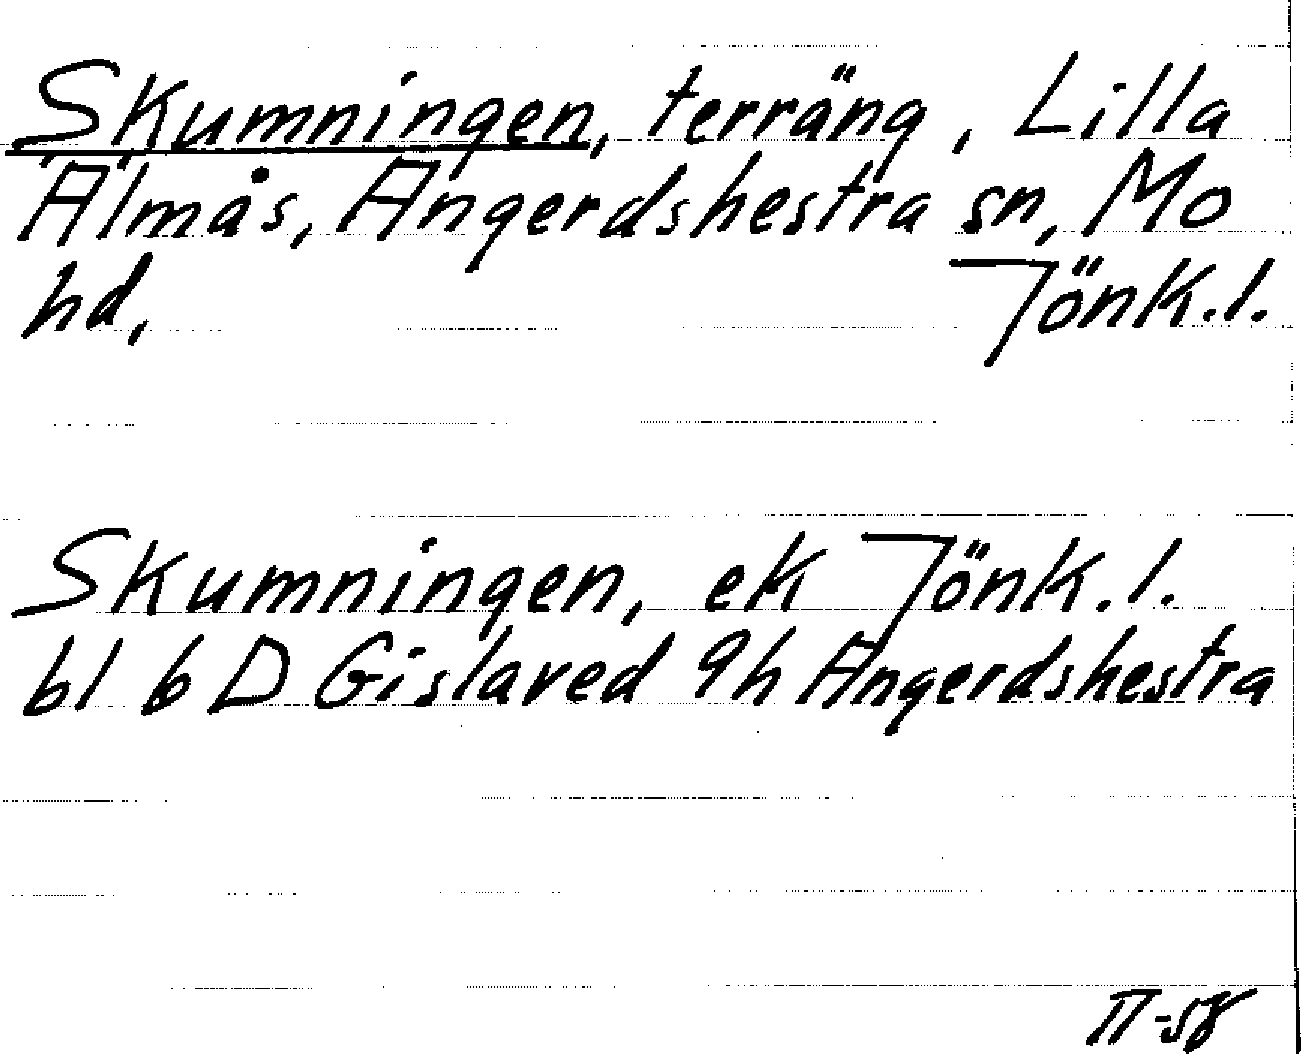 Skumningen, terräng, Lilla
Älmås, Ångerdshestra sn, Mo
hd, Jönk.l.
Skumningen, ek Jönk.l.
bl 6 D Gislaved 9h Ångerdshestra
II-58